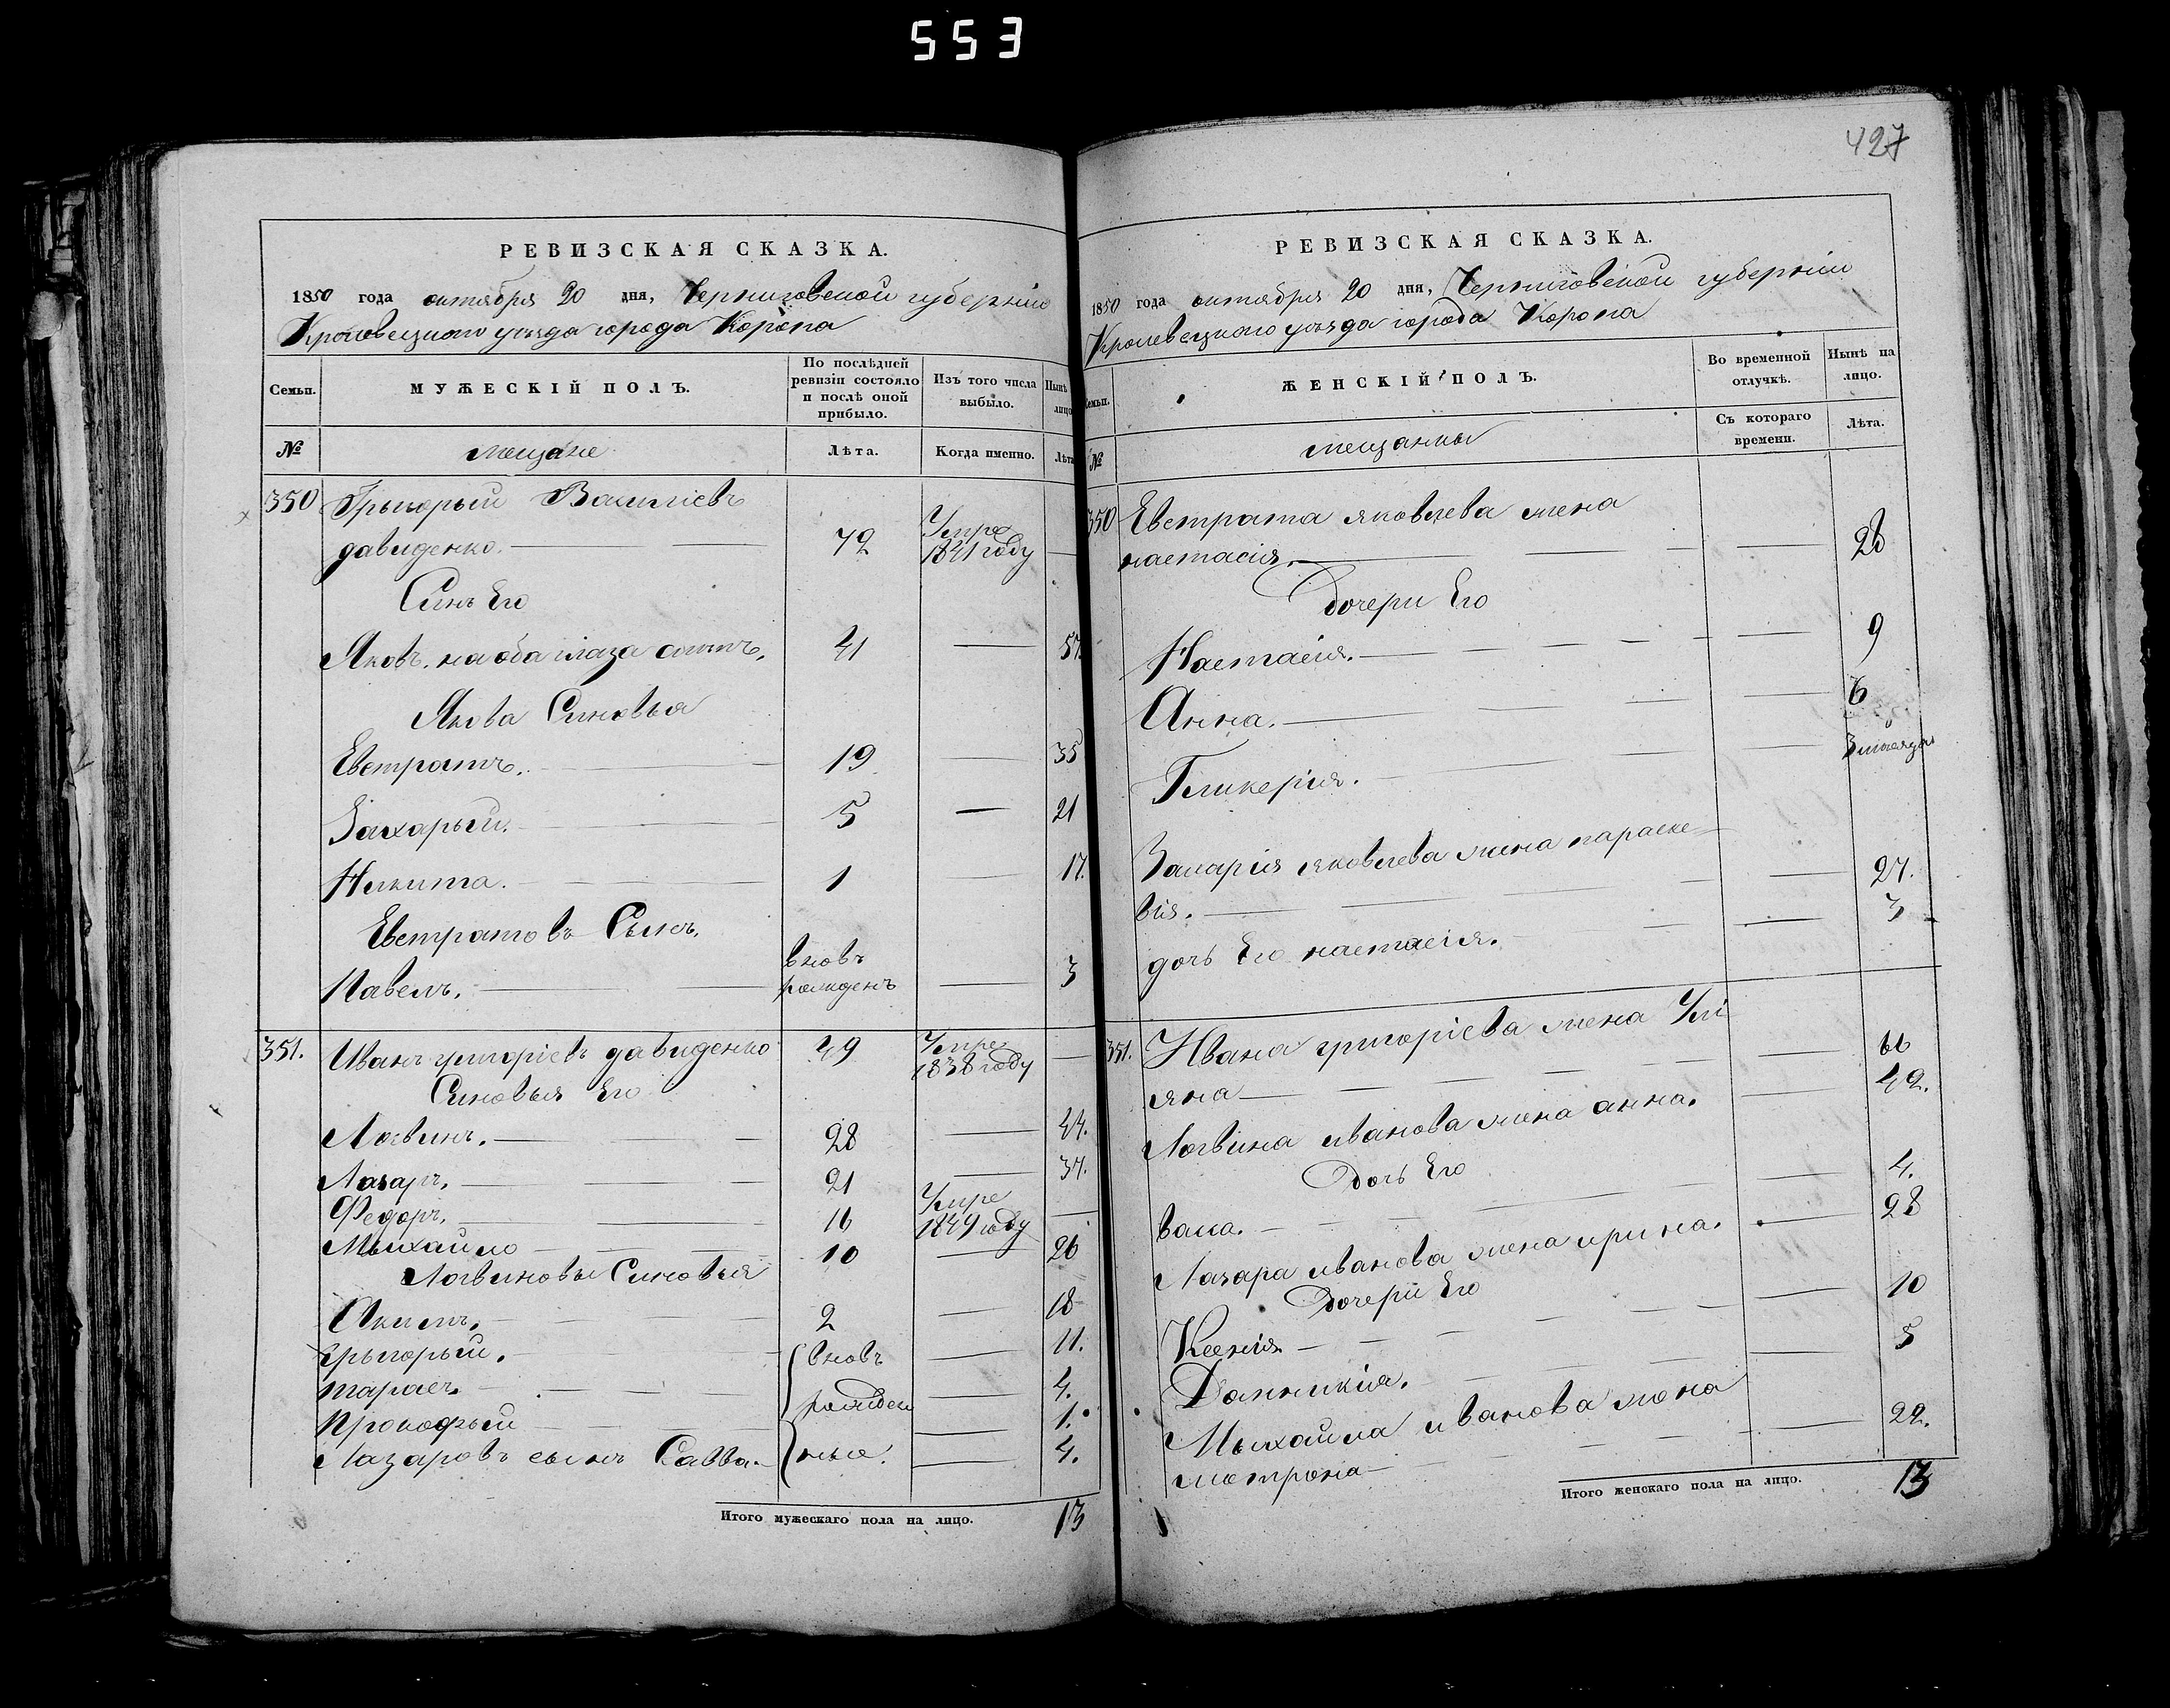 553
427
РЕВИЗСКАЯ СКАЗКА.
1850 года октября 20 дня, Черниговской губернии
Кролевецкого уезда города Коропа
Семьи.
МУЖЕСКІЙ ПОЛЪ.
По послѣдней ревизіи состояло и послѣ оной прибыло.
Изъ того числа выбыло.
Нынѣ лицо
№
мещане
Лѣта.
Когда именно.
Лѣта
350 Грыгорый Василіевъ
давиденко. 72 Умре 1841 году
Синъ Его
Яковъ. на оба глаза слѣпъ. 41 57.
Якова Синовья
Евстратъ. 19 35
Захарый. 5 21
Никита. 1 17.
Евстратовъ Сынъ.
Павелъ. вновь рожденъ 3
351. Иванъ григоріевъ давиденко 49 Умре 1838 году
Синовья Его
Логвинъ. 28 44.
Лазаръ. 21 37.
Федоръ. 16 Умре 1849 году
Мыхайло 10 26
Логвиновы Синовья
Акимъ. 2 18
грыгорый. вновь 11.
тарасъ. рожден 4.
прокофый ные. 1.
Лазаровъ сынъ Савва. 4.
Итого мужескаго пола на лицо. 13
РЕВИЗСКАЯ СКАЗКА.
1850 года октября 20 дня, Черниговской губернии
Кролевецкого уезда города Коропа
Семьи.
ЖЕНСКІЙ ПОЛЪ.
Во временной отлучкѣ.
Нынѣ на лицо.
№
мещанки
Съ котораго времени.
Лѣта.
350 Евстрата яковлева жена
настасія. 28
Дочери Его
Настасія. 9
Анна. 6
Гликерія. 3 месяца
Захарія яковлева жена параске-
вія. 27.
дочь Его настасія. 3
351. Ивана григоріева жена Улі
яна 66
Логвина иванова жена анна. 42.
Дочь Его
васа. 4.
Лазара иванова жена ирина. 28
Дочери Его
Ксенія 10
Домникія. 5
Мыхайла иванова жена
мотрона 22.
Итого женскаго пола на лицо. 13